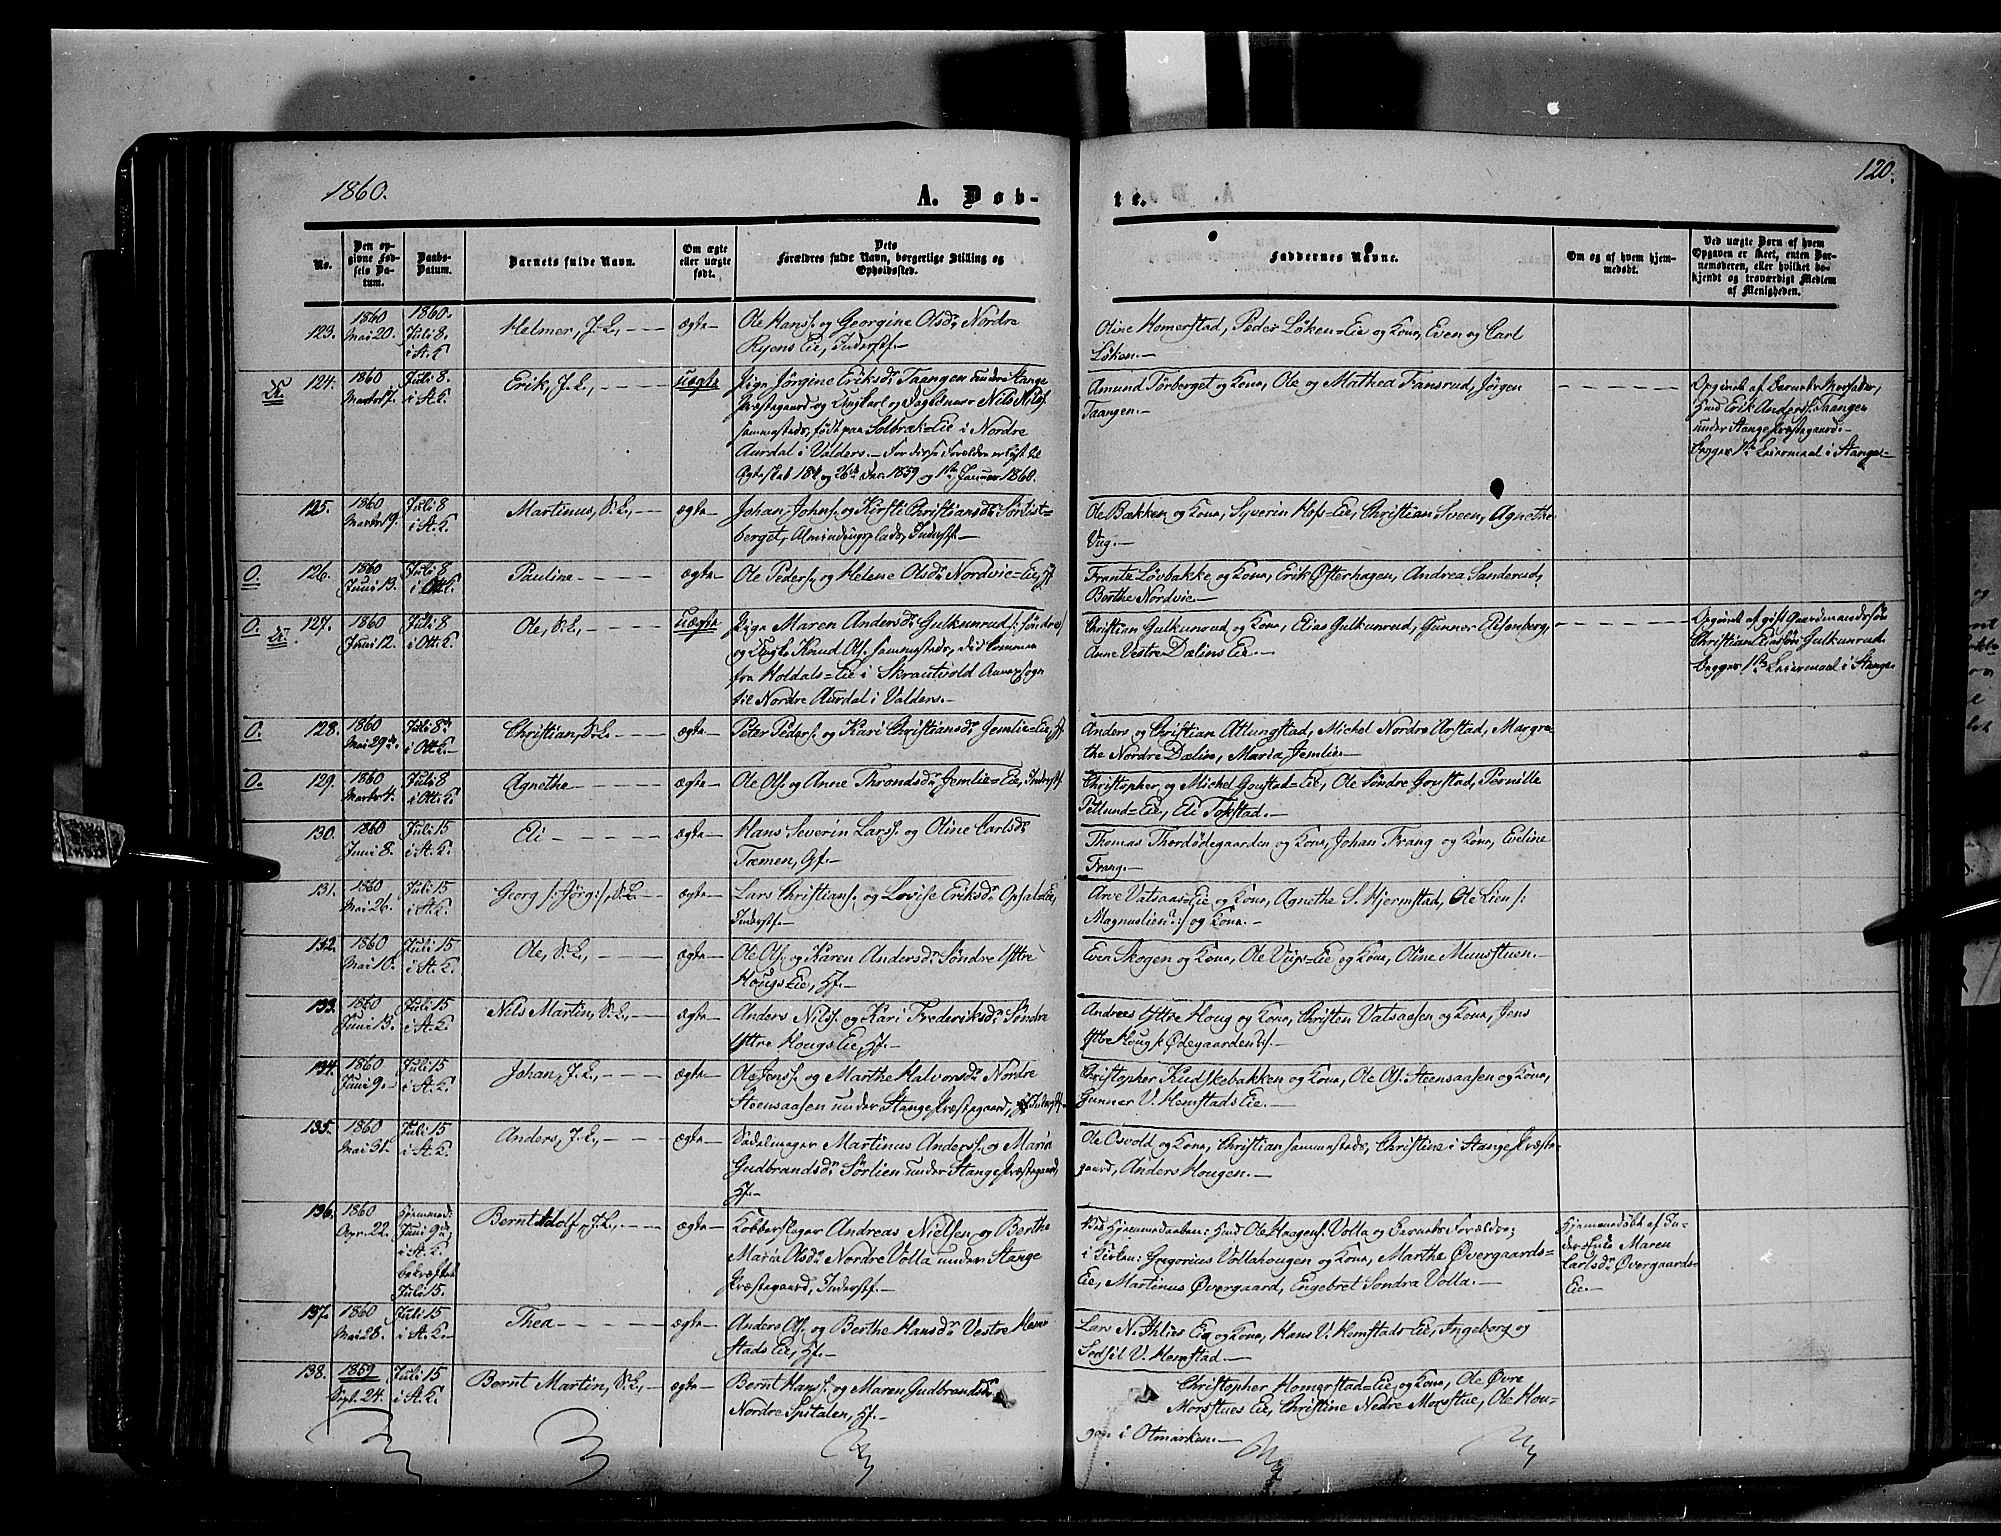 1860.
A. Døb-
te.
120.
No.
Den op-
givne Fød-
sels Da-
tum.
Daabs-
Datum.
Barnets fulde Navn.
Om ægte
eller uægte
født.
Dets
Forældres fulde Navn, borgerlige Stilling og
Opholdssted.
Faddernes Navne.
Om og af hvem hjem-
medøbt.
Ved uægte Børn af hvem
Opgaven er skeet, enten Bar-
nemoderen, eller hvilket be-
kjendt og troværdigt Medlem
af Menigheden.
123. 1860 Mai 20. 1860. Juli 8. i St. K. Helmer, J. L., - - ægte-
Ole Hans. og Georgine Olsd. Nordre
Ryens Eie, Inderst.-
Oline Homerstad, Peder Løken=Eie og Kone, Even og Carl
Løken.-
124. 1860 Juli 8. i St. K. Erik, J. L., - - - uægte
Pige Jørgine Eriksd. Taangen under Stange
Præstegaard og Ungkarl og Nils Nils.
sammesteds, født paa Solbræk=Eie i Nordre
Aurdal i Valders.- For disse Forældre er lyst til
Ægteskab 26de Dec. 1859 og 1ste Januar 1860.
Amund Torberget og Kone, Ole og Mathea Fansrud, Jørgen
Taangen.-
Opgivet af Barnets Morfader,
Huusmand Erik Anders. Taangen
under Stange Præstegaard.-
Begges 1ste Leiermaal i Stange.-
125. 1860 Juli 8 i St. K. Martinus, S. L., - ægte-
Johan Johns. og Kirsti Christiansd. Sørlist-
berget, Almindingsplads, Inderst.-
Ole Bækken og Kone, Syverin Hofs=Eie, Christian Sveen, Agnethe
Vug.-
O. 126. 1860 Juni 13. Juli 8 i Ott. K. Pauline - - ægte-
Ole Peders. og Helene Olsd. Nordvie=Eie, Hf.
Frantz Løvbakke og Kone, Erik Ofterhagen, Andrea Sanderud,
Berthe Nordvie.-
O. 127. 1860 Juni 12. Juli 8 i Ott. K. Ole, S. L., - - uægte
Pige Maren Andersd. Gulkunrud /: Søndre/
og Ungk. Knud Ols. sammesteds, did kommen
fra Holdals=Eie i Skrautvold Annexsogn
til Nordre Aurdal i Valders.-
Christian Gulkunrud og Kone, Elias Gulkunrud, Gunner Eisenberg,
Anne Vestre Dælins Eie.-
Opgivet af gift Gaardmandssøn
Christian Gulkunrud.
Begges 1ste Leiermaal i Stange.
O. 128. 1860 Mai 29de Juli 8de i Ott. K. Christian, S. L. - ægte-
Peter Peders. og Kari Christiansd. Jemlie=Eie, Hf.
Anders og Christian Atlungstad, Michel Nordre Arstad, Margre-
the Nordre Dælin, Maria Jemlie.-
O. 129. 1860 Marts 4. Juli 8 i Ott. K. Agnethe - - ægte-
Ole Ols. og Anne Throndsd. Jemlie=Eie, Inderst.
Christopher og Michel Gonstad=Eie, Ole Søndre Gonstad, Pernille
Petlund=Eie, Eli Tokstad.-
130. 1860 Juni 8. Juli 15 i St. K. Eli - - - ægte-
Hans Severin Lars. og Oline Carlsd.
Tæmen, Gf.-
Thomas Thorsødegaarden og Kone, Johan Frang og Kone, Eveline
Frang.-
131. 1860 Mai 26. Juli 15 i St. K. Georg /: Jörg:/, S. L. - ægte-
Lars Christians. og Lovise Eriksd. Opsal=Eie,
Inderst.-
Arve Vatsaas=Eie og Kone, Agnethe S. Hjermstad, Ole Lien /:
Magnuslien?:/ og Kone.-
132. 1860 Mai 10. Juli 15 i St. K. Ole, S. L., - - ægte-
Ole Ols. og Karen Andersd. Søndre Yttre
Hougs Eie, Hf.-
Even Skogen og Kone, Ole Vugs=Eie og Kone, Oline Muusstuen.-
133. 1860 Juni 13. Juli 15 i St. K. Nils Martin, S. L., - ægte-
Anders Nils. og Kari Frederiksd. Søndre
Yttre Hougs Eie, Hf.-
Andreas Yttre Houg og Kone, Christen Vatsaasen og Kone, Jens
Yttre Houg /: Ødegaarden?:/.-
134. 1860 Juni 9.- Juli 15 i St. K. Johan, J. L., - - ægte-
Ole Jens. og Marthe Halvorsd. Nordre
Steensaasen under Stange Præstegaard, Inderst.
Christopher Kudskebakken og Kone, Ole Ols. Steensaasen og Kone,
Gunner V. Hemstads Eie.-
135. 1860 Mai 31. Juli 15 i St. K. Anders, J. L., - - ægte-
Sadelmager Martinus Anders. og Maria
Gudbrandsd. Sørlien under Stange Præstegaard,
Hf.-
Ole Osvold og Kone, Christian sammesteds, Christine i Stange Præste-
gaard, Anders Hougen.-
136. 1860 Apr. 22. Hjemmed: Juni 9de, i St. K. bekræftet Juli 15. Bernt Adolf, J. L., - - ægte-
Kobberslager Andreas Nielsen og Berthe
Maria Olsd. Nordre Volla under Stange
Præstegaard, Inderst.-
Ved Hjemmedaaben: Huusmand Ole Haagens. Volla og Barnets Forældre;
i Kirken: Gregorius Vollahougen og Kone, Marthe Øvergaards=
Eie, Martinus Øvergaard, Engebret Sondre Volla.-
Hjemmedøbt af In-
derst-Enke Maren
Carlsd. Øvergaards-
Eie.-
137. 1860 Mai 28. Juli 15 i St. K. Thea - - - ægte-
Anders Ols. og Berthe Hansd. Vestre Hem-
stads Eie, Hf.-
Lars N. Ihlies Eie og Kone, Hans V. Hemstads Eie, Ingeborg og
Sedsil V. Hemstad.-
138. 1859 Sept. 24. Juli 15 i St. K. Bernt Martin, S. L., - ægte-
Bernt Hans. og Maren Gudbrandsd.
Nordre Spitalen, Hf.-
Christopher Homerstad=Eie og Kone, Ole Øvre
Morstues Eie, Christine Nedre Morstue, Ole Hou-
gen i Otmarken.-